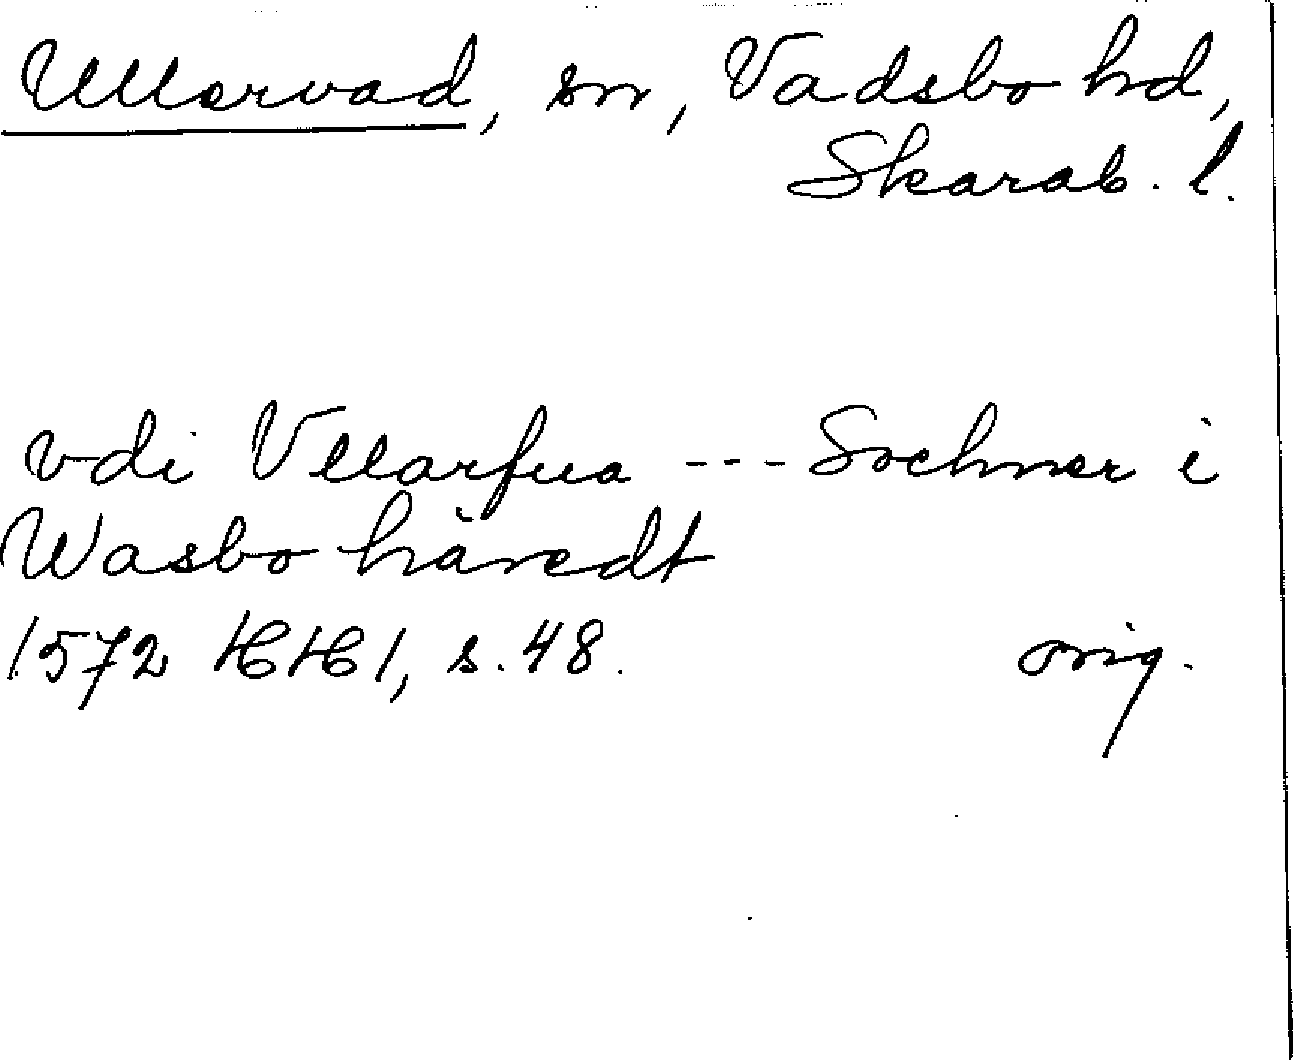 Ullervad, sn, Vadsbo hd,
Skarab. l.
vdi Vllarfua --- Sochner i
Wasbo häredt
1572 HH 1, s. 48. orig.